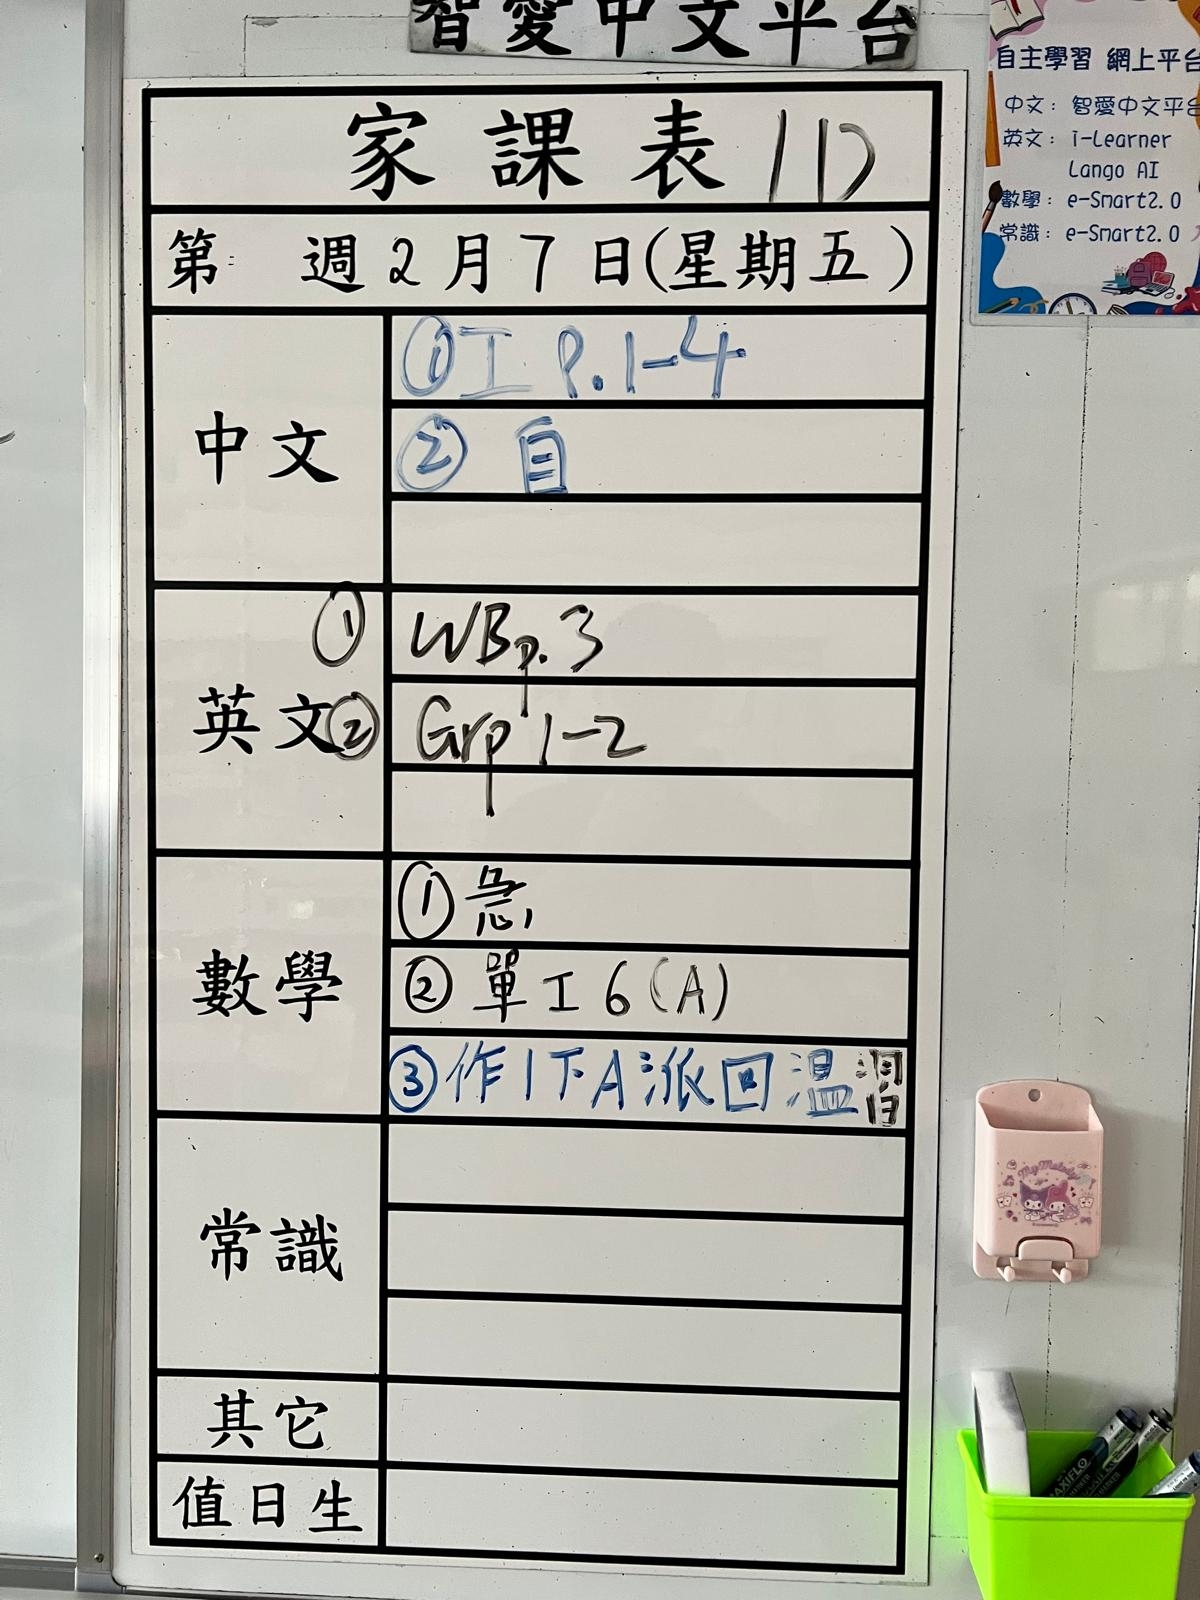 智愛中文平台
自主學習 網上平台
中文：智愛中文平台
英文：i-Learner
Lango AI
數學：e-Smart2.0
常識：e-Smart2.0
家課表 1D
第 週2月7日(星期五)
中文
①工 P.1-4
②自
英文
① WBp.3
② Grp 1-2
數學
①急
②單工6(A)
③作1下A派回溫習
常識
其它
值日生
My Melody
MAXIFLO